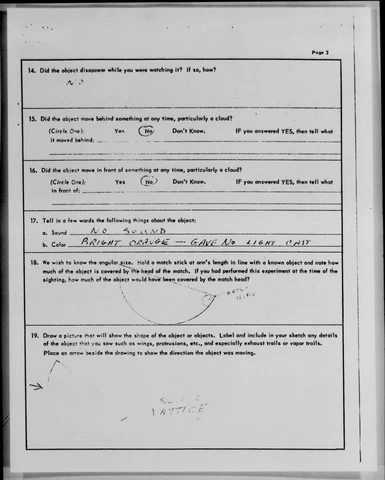 Page 3
14. Did the object disappear while you were watching it? If so, how?
NO
15. Did the object move behind something at any time, particularly a cloud?
(Circle One): Yes No Don't Know. IF you answered YES, then tell what
it moved behind:
16. Did the object move in front of something at any time, particularly a cloud?
(Circle One): Yes No. Don't Know. IF you answered YES, then tell what
in front of:
17. Tell in a few words the following things about the object:
a. Sound NO SOUND
b. Color BRIGHT ORANGE — GAVE NO LIGHT CAST
18. We wish to know the angular size. Hold a match stick at arm's length in line with a known object and note how
much of the object is covered by the head of the match. If you had performed this experiment at the time of the
sighting, how much of the object would have been covered by the match head?
MATCH
HEAD
19. Draw a picture that will show the shape of the object or objects. Label and include in your sketch any details
of the object that you saw such as wings, protrusions, etc., and especially exhaust trails or vapor trails.
Place an arrow beside the drawing to show the direction the object was moving.
LATTICE